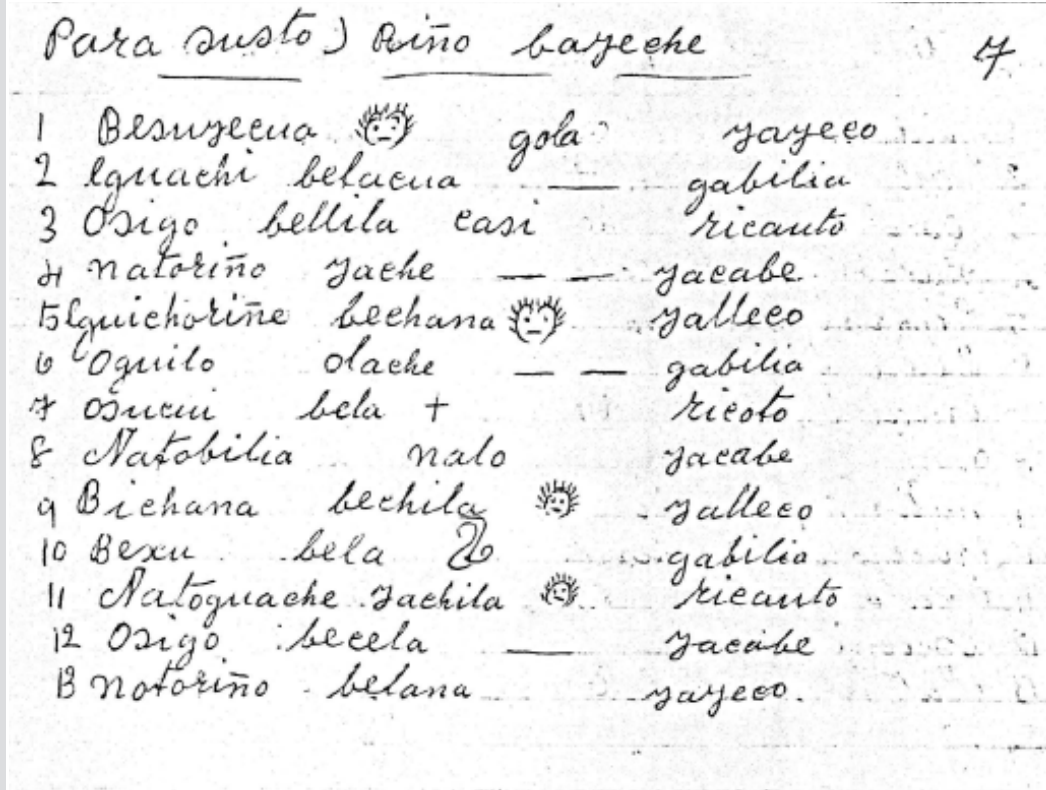 Para susto) Riño bayeche 7
1 Besuyecua gola yayeco
2 Iguachi belacua — gabilia
3 Osigo bellila casi ricanto
4 natoriño yache — — yacabe
5 Iguichoriñe bechana yalleco
6 Oguilo olache — — gabilia
7 Osucui bela + ricoto
8 Natobilia nalo yacabe
9 Bichana bechila yalleco
10 Bexu bela gabilia
11 Natoguache yachila ricanto
12 Osigo becela — yacabe
13 notoriño belana yayeco.